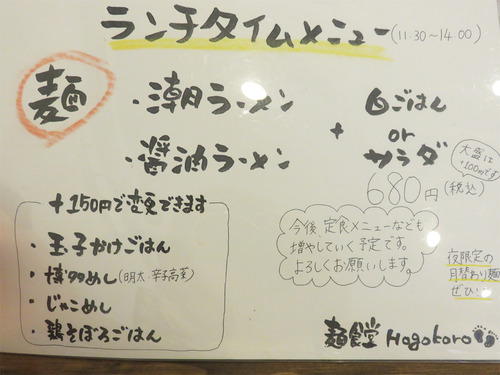 ランチタイムメニュー(11:30〜14:00)
麺
・潮ラーメン
・醤油ラーメン
+
白ごはん
or
サラダ
大盛は
+100円です
680円(税込)
+150円で変更できます
・玉子かけごはん
・博多めし(明太・辛子高菜)
・じゃこめし
・鶏そぼろごはん
今後、定食メニューなども
増やしていく予定です。
よろしくお願いします。
夜限定の
月替わり麺
ぜひ!
麺食堂 Hagokoro